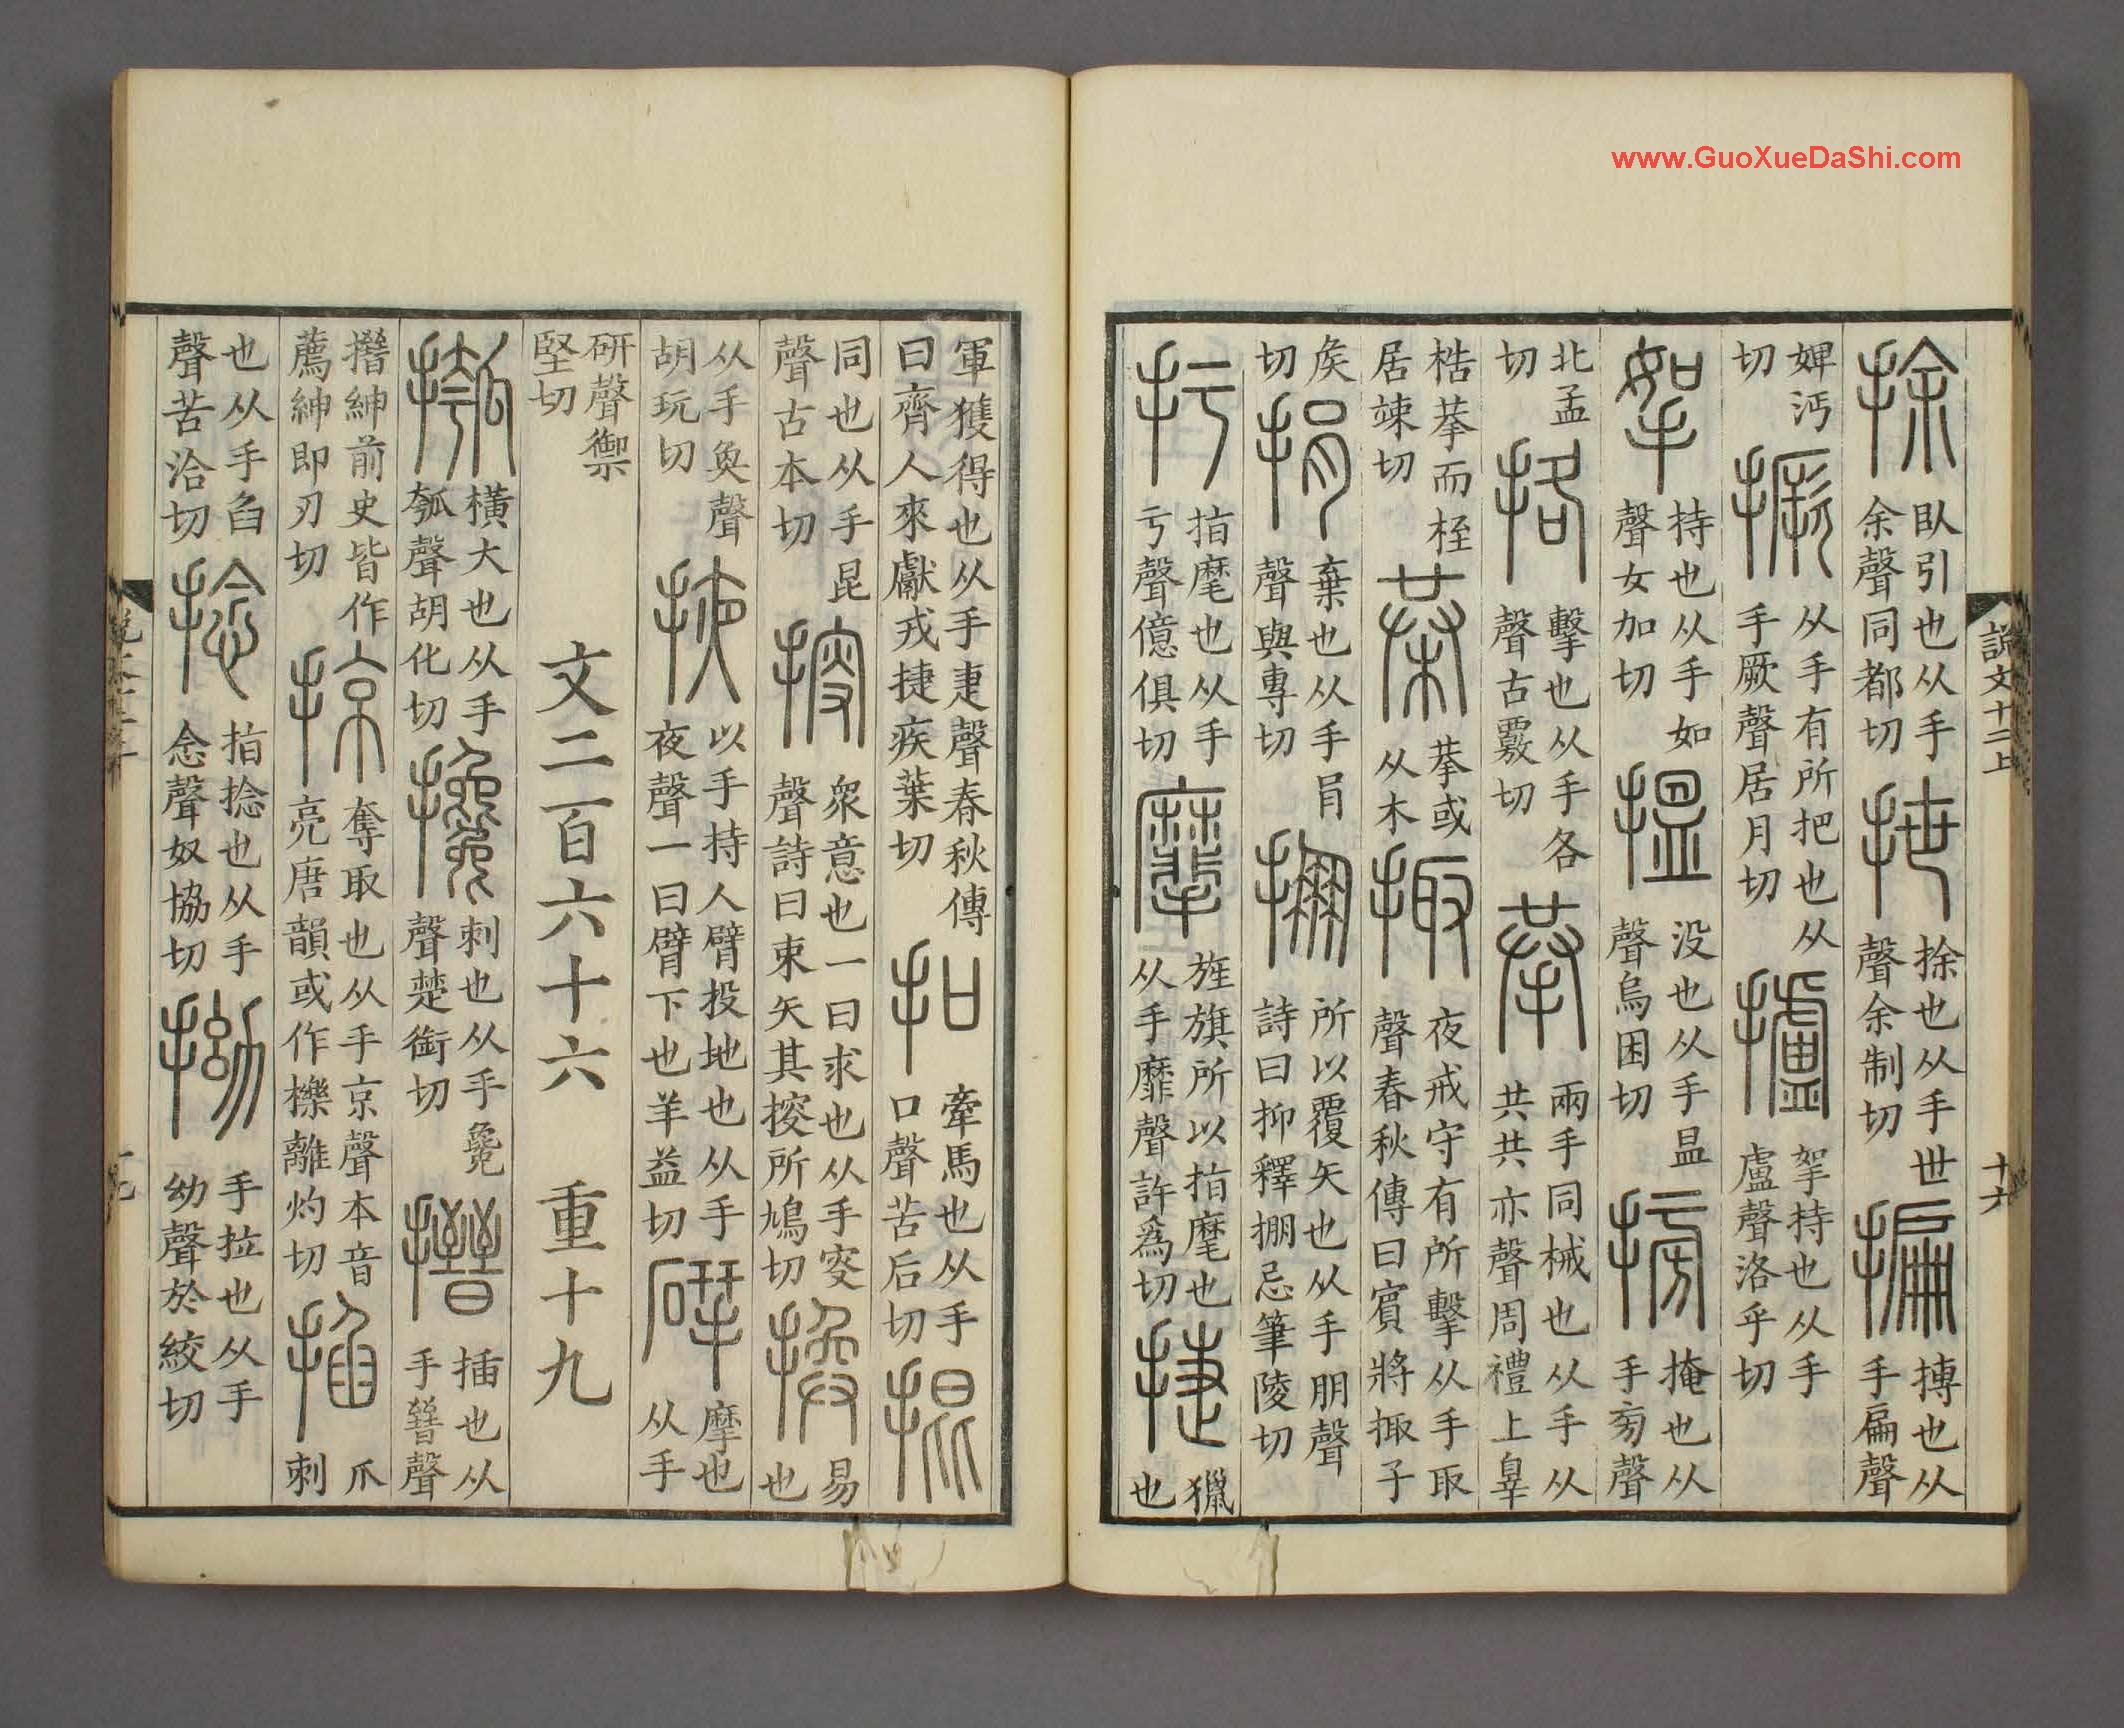 www.GuoXueDaShi.com
說文十二上 十六
捈臥引也从手余聲同都切抴捈也从手世聲余制切揙搏也从手扁聲
婢沔切撅从手有所把也从手厥聲居月切攎挐持也从手盧聲洛乎切
挐持也从手如聲女加切搵没也从手昷聲烏困切搒掩也从手㫄聲
北孟切挌擊也从手各聲古覈切拲兩手同械也从手从共共亦聲周禮上辠
梏拲而桎居竦切𣑌拲或从木掫夜戒守有所擊从手取聲春秋傳曰賓將掫子
矦切捐棄也从手肙聲與專切掤所以覆矢也从手朋聲詩曰抑釋掤忌筆陵切
扜指麾也从手亏聲億俱切𢺞旌旗所以指麾也从手靡聲許爲切捷獵也
軍獲得也从手疌聲春秋傳曰齊人來獻戎捷疾葉切扣牽馬也从手口聲苦后切掍
同也从手昆聲古本切搜衆意也一曰求也从手叜聲詩曰束矢其搜所鳩切換易也
从手奐聲胡玩切掖以手持人臂投地也从手夜聲一曰臂下也羊益切揅摩也从手
研聲禦堅切
文二百六十六 重十九
摦橫大也从手瓠聲胡化切攙刺也从手毚聲楚銜切搢插也从手晉聲
搢紳前史皆作薦紳即刃切掠奪取也从手京聲本音亮唐韻或作擽離灼切掐爪刺
也从手臽聲苦洽切捻指捻也从手念聲奴協切拗手拉也从手幼聲於絞切